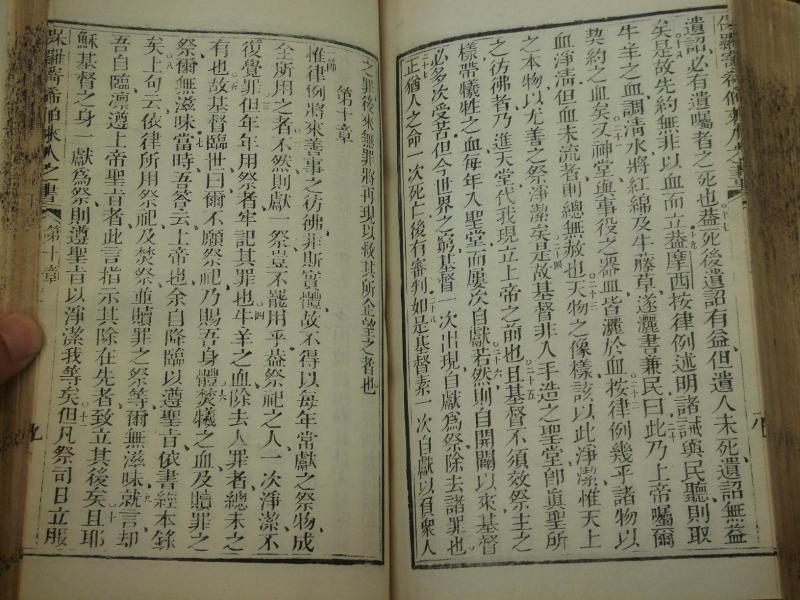 遺詔必有遺囑者之死也蓋死後遺詔有益但遺人未死遺詔無益
矣是故先約無非以血而立蓋摩西按律例述明諸誡與民聽則取
牛羊之血調清水將紅綿及牛藤草遂灑書兼民曰此乃上帝囑爾
契約之血矣又神堂與事役之器皿皆灑於血按律例幾乎諸物以
血淨清但血未流者則總無赦也天物之像樣該以此淨潔惟天上
之本物以尤善之祭淨潔矣是故基督非人手造之聖堂卽眞聖所
之彷彿者乃進天堂代我現立上帝之前也且基督不須效祭主之
樣帶犧牲之血每年入聖堂而屢次自獻若然則自開闢以來基督
必多次受苦但今世界之窮基督一次出現自獻爲祭除去諸罪也
正猶人之命一次死亡後有審判如是基督素一次自獻以負衆人
之罪後來無罪將再現以救其所企望之者也
第十章
惟律例將來善事之彷彿非斯實體故不得以每年常獻之祭物成
全所用之者不然則獻一祭豈不罷用乎蓋祭祀之人一次淨潔不
復覺罪但年年用祭者牢記其罪也牛羊之血除去人罪者總未之
有也故基督臨世曰爾不願祭祀乃賜吾身體焚犧之血及贖罪之
祭爾無滋味當時吾答云上帝也余自降臨以遵聖旨依書經本錄
矣上句云依律所用祭祀及焚祭並贖罪之祭等爾無滋味就言却
吾自臨凉遵上帝聖旨者此言指示其除在先者致立其後矣且耶
穌基督之身一獻爲祭則遵聖旨以淨潔我等矣但凡祭司日立服
第十章